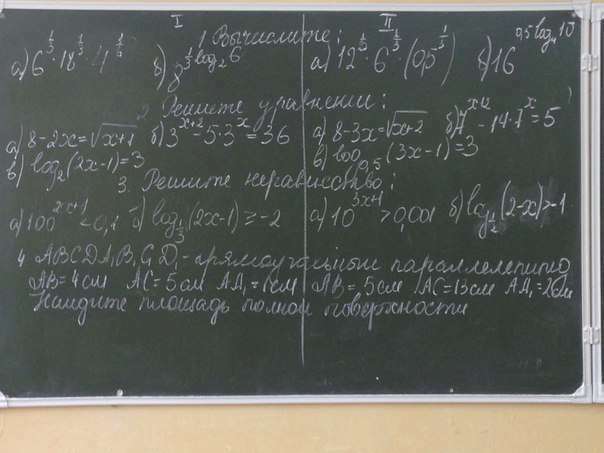 I II
1 Вычислите:
а) 6^{1/3} · 18^{1/3} · 4^{1/6} б) 8^{1/3 log₂ 6} а) 12^{1/3} · 6^{1/3} · (0,5)^{1/3} б) 16^{0,5 log₄ 10}
2 Решите уравнении:
а) 8-2x=√x+1 б) 3^{x+2} - 5·3^x = 36 а) 8-3x=√x+2 б) 7^{x+2} - 14·7^x = 5
в) log₂(2x-1)=3 в) log_{0,5}(3x-1)=3
3. Решите неравенство:
а) 100^{2x+1} < 0,1 б) log_{1/3}(2x-1) ≥ -2 а) 10^{3x+1} > 0,001 б) log_{1/2}(2-x) > -1
4 ABCDA₁B₁C₁D₁ - прямоугольный параллелепипед
AB=4см AC=5см АД₁= см AB=5см AC=13см АД₁= см
Найдите площадь полной поверхности